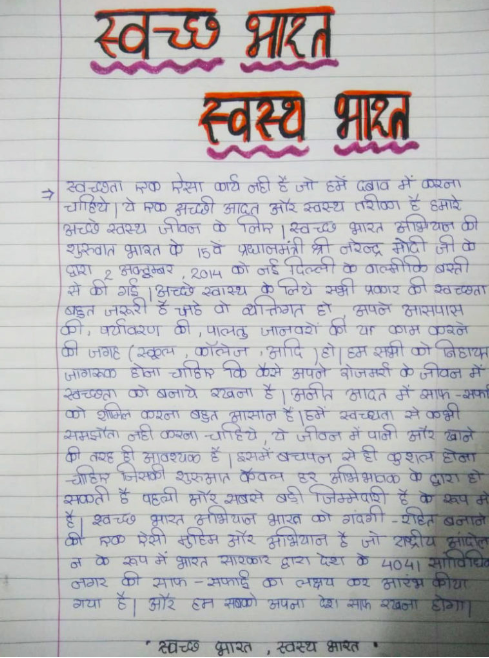 स्वच्छ भारत
स्वस्थ भारत
⇒ स्वच्छता एक ऐसा कार्य नही है जो हमें दबाव में करना
चाहिये | ये एक अच्छी आदत और स्वस्थ तरीका है हमारे
अच्छे स्वस्थ जीवन के लिए | स्वच्छ भारत अभियान की
शुरुवात भारत के 15वे प्रधानमंत्री श्री नरेन्द्र मोदी जी के
द्वारा 2 अक्टूम्बर, 2014 को नई दिल्ली के वाल्मीकि बस्ती
से की गई | अच्छे स्वास्थ के लिये सभी प्रकार की स्वच्छता
बहुत जरूरी है चाहे वो व्यक्तिगत हो, अपने आसपास
की, पर्यावरण की, पालतु जानवरो की या काम करने
की जगह (स्कूल, कॉलेज, आदि) हो | हम सभी को निहायत
जागरूक होना चाहिए कि कैसे अपने रोजमर्रा के जीवन में
स्वच्छता को बनाये रखना है | अपनी आदत में साफ-सफाई
को शामिल करना बहुत आसान है | हमें स्वच्छता से कभी
समझौता नही करना चाहिये, ये जीवन में पानी और खाने
की तरह ही आवश्यक है | इसमें बचपन से ही कुशल होना
चाहिए जिसकी शुरुआत केवल हर अभिभावक के द्वारा हो
सकती है पहली और सबसे बडी जिम्मेदारी है के रूप मे
है | स्वच्छ भारत अभियान भारत को गंदगी-रहित बनाने
की एक ऐसी मुहिम और अभियान है जो राष्ट्रीय आंदोल
न के रूप में भारत सरकार द्वारा देश के 4041 सांविधिक
नगर की साफ-सफाई का लक्ष्य कर आरंभ कीया
गया है | और हम सबको अपना देश साफ रखना होगा |
" स्वच्छ भारत, स्वस्थ भारत "